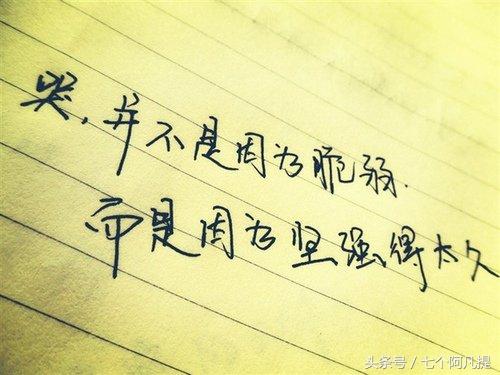 哭,并不是因为脆弱.
而是因为坚强得太久
头条号/七个阿凡提